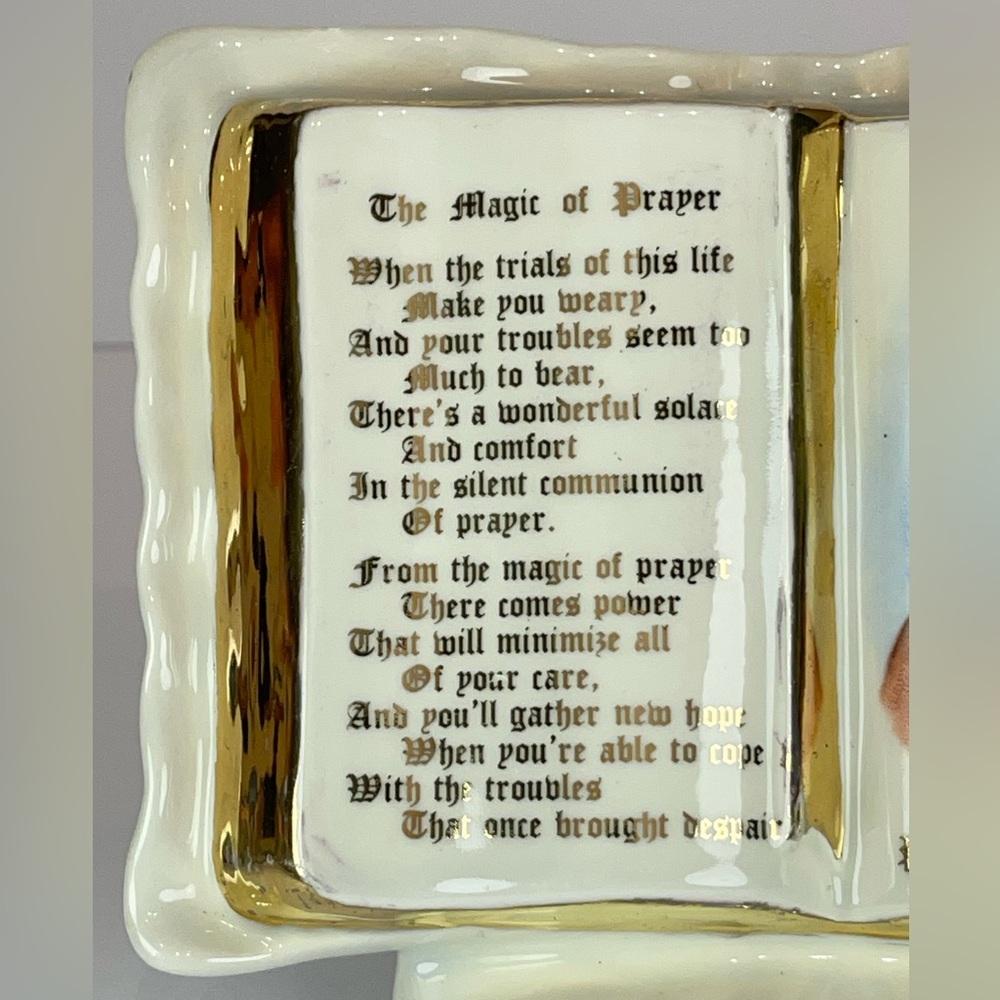 The Magic of Prayer
When the trials of this life
Make you weary,
And your troubles seem too
Much to bear,
There's a wonderful solace
And comfort
In the silent communion
Of prayer.
From the magic of prayer
There comes power
That will minimize all
Of your care,
And you'll gather new hope
When you're able to cope
With the troubles
That once brought despair